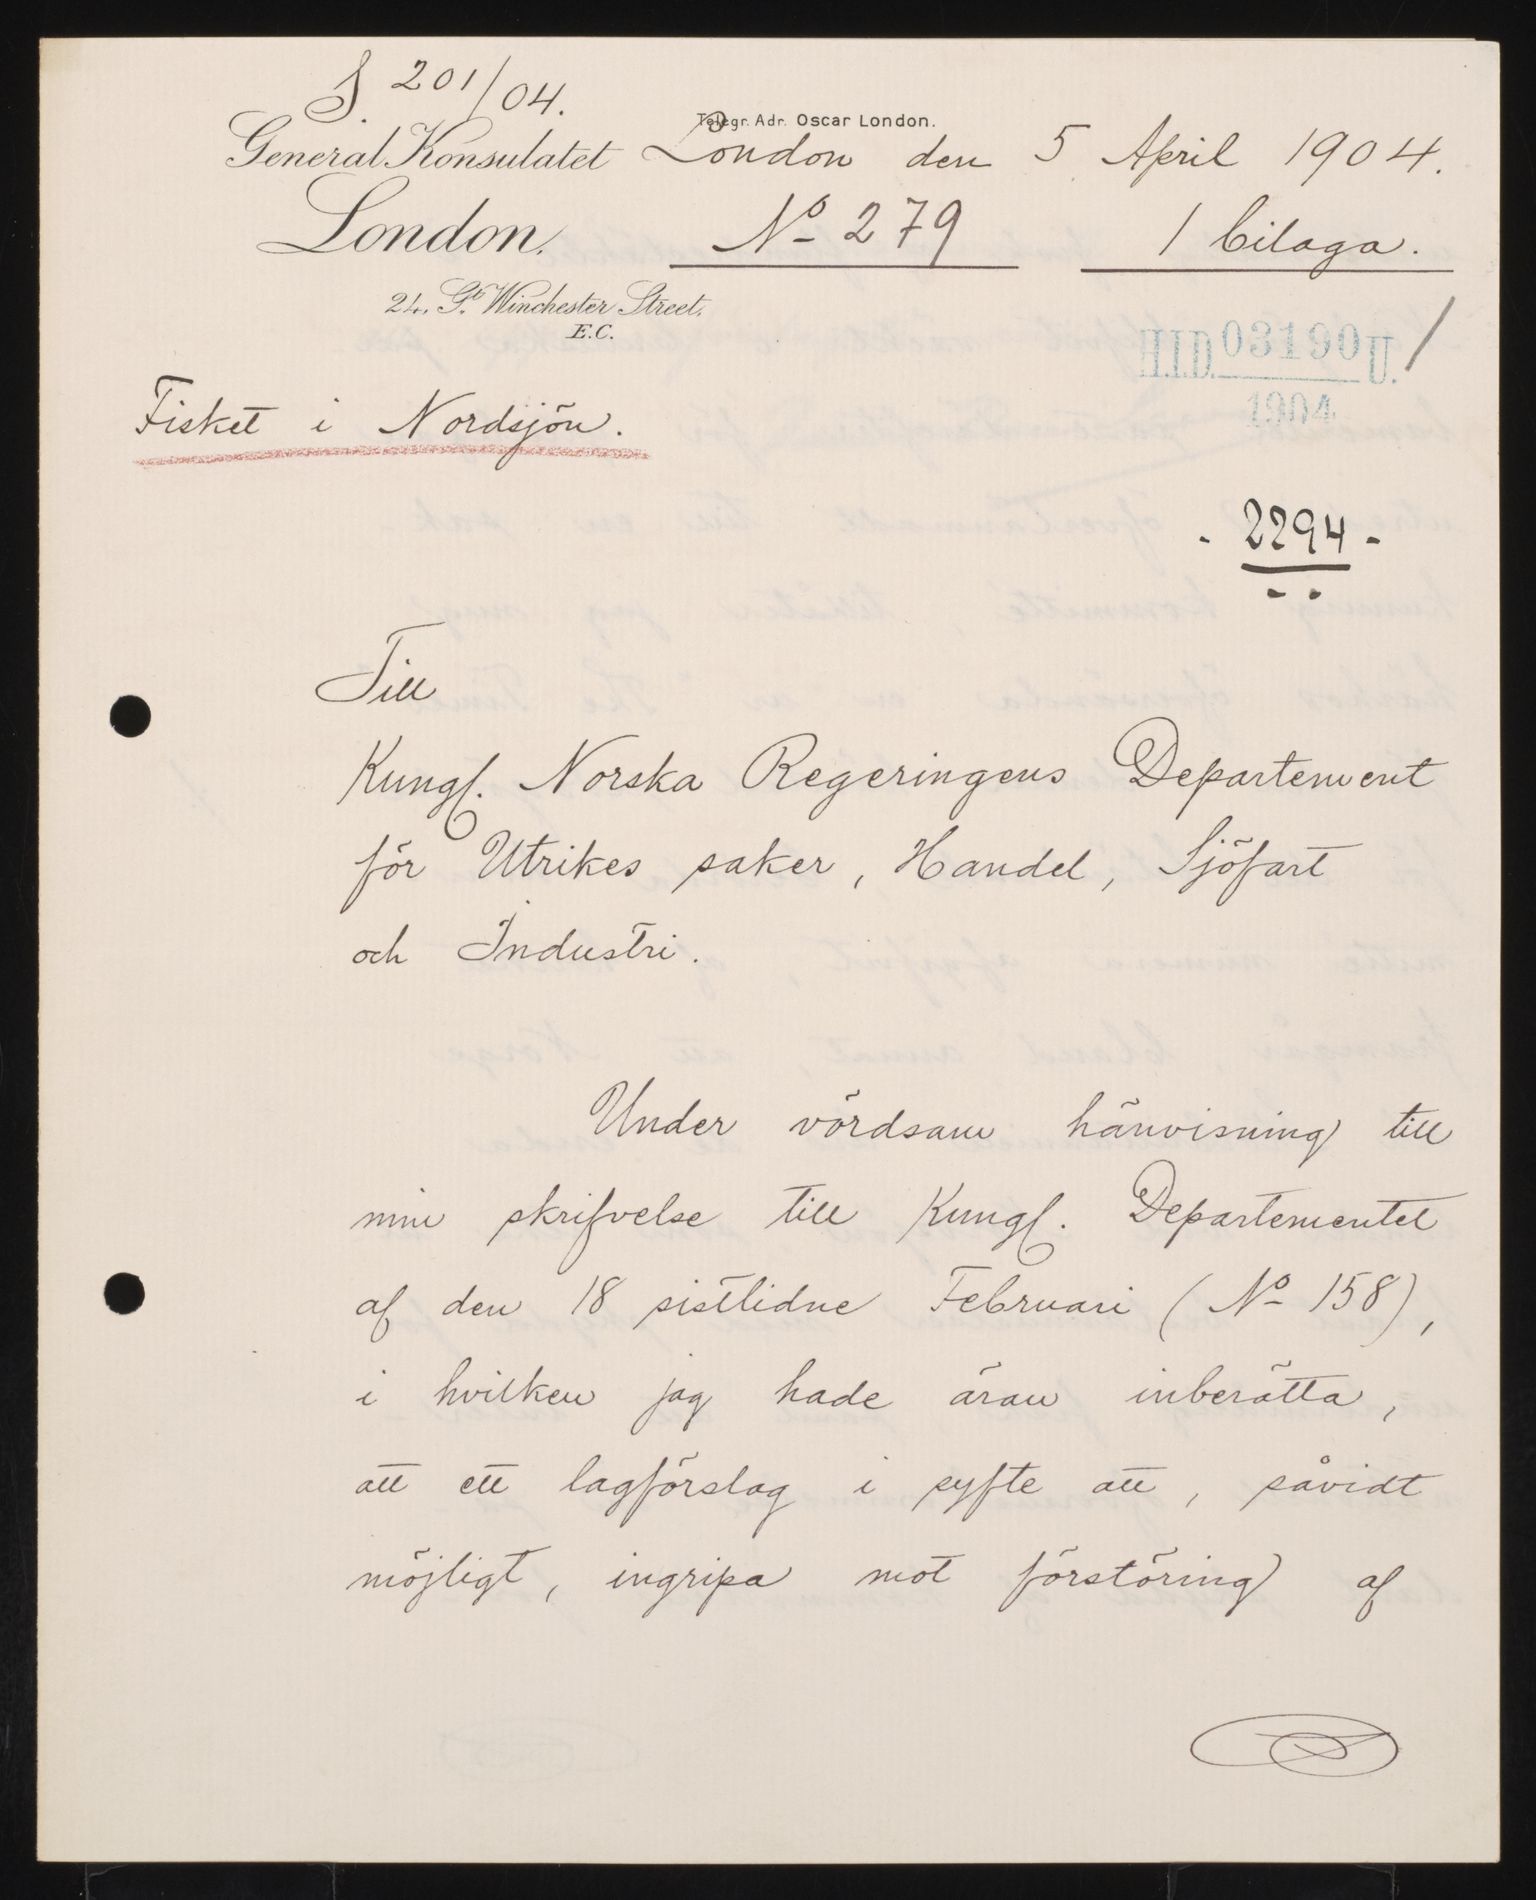 S. 201/04.
Telegr. Adr. Oscar London.
General Konsulatet London den 5 April 1904.
London. No 279 1 bilaga.
24, Gt. Winchester Street.
E.C.
H.I.D. 03190 U.
1904
Fisket i Nordsjön.
- 2294 -
Till
Kungl. Norska Regeringens Departement
för Utrikes saker, Handel, Sjöfart
och Industri.
Under vördsam hänvisning till
min skrifvelse till Kungl. Departementet
af den 18 sistlidne Februari (No 158),
i hvilken jag hade äran inberätta,
att ett lagförslag i syfte att, såvidt
möjligt, ingripa mot förstöring af